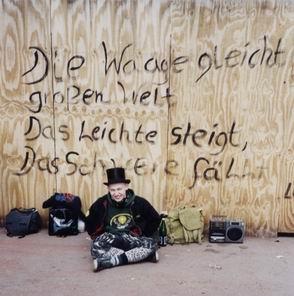 Die Waage gleicht
großen Welt
Das Leichte steigt,
Das Schwere fällt